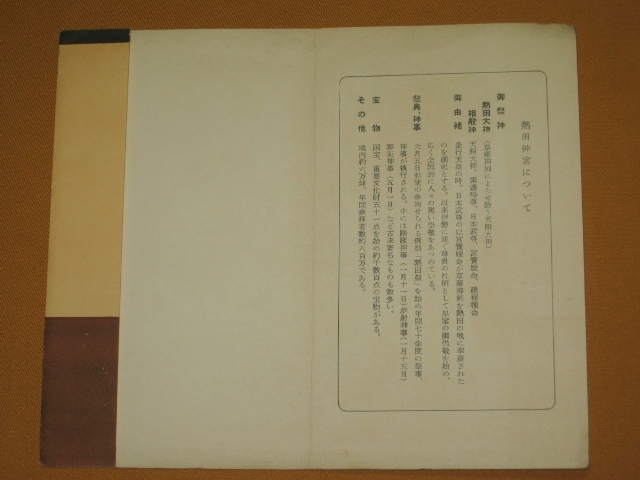 熱田神宮について
御祭神
熱田大神 (草薙神剣によらせ給う天照大神)
相殿神 天照大神、素盞嗚尊、日本武尊、宮簀媛命、建稲種命
御由緒 景行天皇の時、日本武尊の妃宮簀媛命が草薙神剣を熱田の地に奉斎された
のを創祀とする。以来伊勢に次ぐ尊貴の社柄として皇室の御崇敬を始め、
広く全国的に人々の篤い崇敬をあつめている。
祭典・神事 六月五日勅使の参向せられる例祭「熱田祭」を始め年間七十余度の祭事、
神事が執行される。中には踏歌神事(一月十一日)歩射神事(一月十五日)
神事(五月一日)など古来著名なものも数多い。
宝物 国宝、重要文化財五十一点を始め約千数百点の宝物がある。
その他 境内約六万坪、年間参拝者数約八百万である。